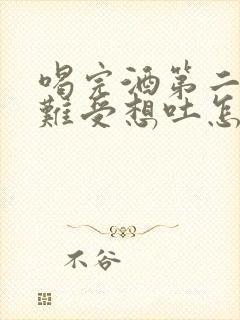 喝完酒第二
难受想吐怎
不谷